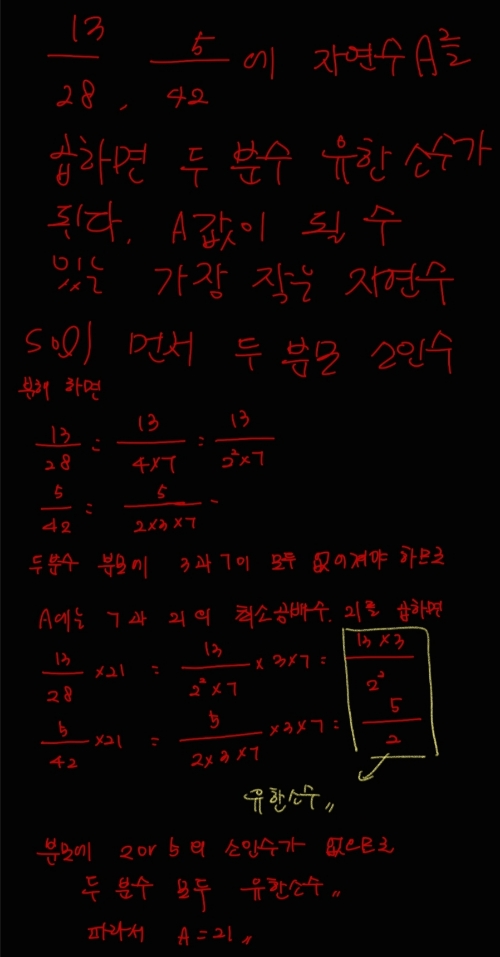 13/28, 5/42 에 자연수 A를
곱하면 두 분수 유한소수가
된다. A값이 될 수
있는 가장 작은 자연수
sol) 먼저 두 분모 소인수
분해 하면
13/28 = 13/4×7 = 13/2²×7
5/42 = 5/2×3×7 -
두분수 분모에 3과 7이 모두 없어져야 하므로
A에는 7과 21의 최소공배수. 21를 곱하면
13/28 ×21 = 13/2²×7 × 3×7 = 13×3/2²
5/42 ×21 = 5/2×3×7 ×3×7 = 5/2
유한소수〃
분모에 2 or 5의 소인수가 없으므로
두 분수 모두 유한소수〃
따라서 A=21〃